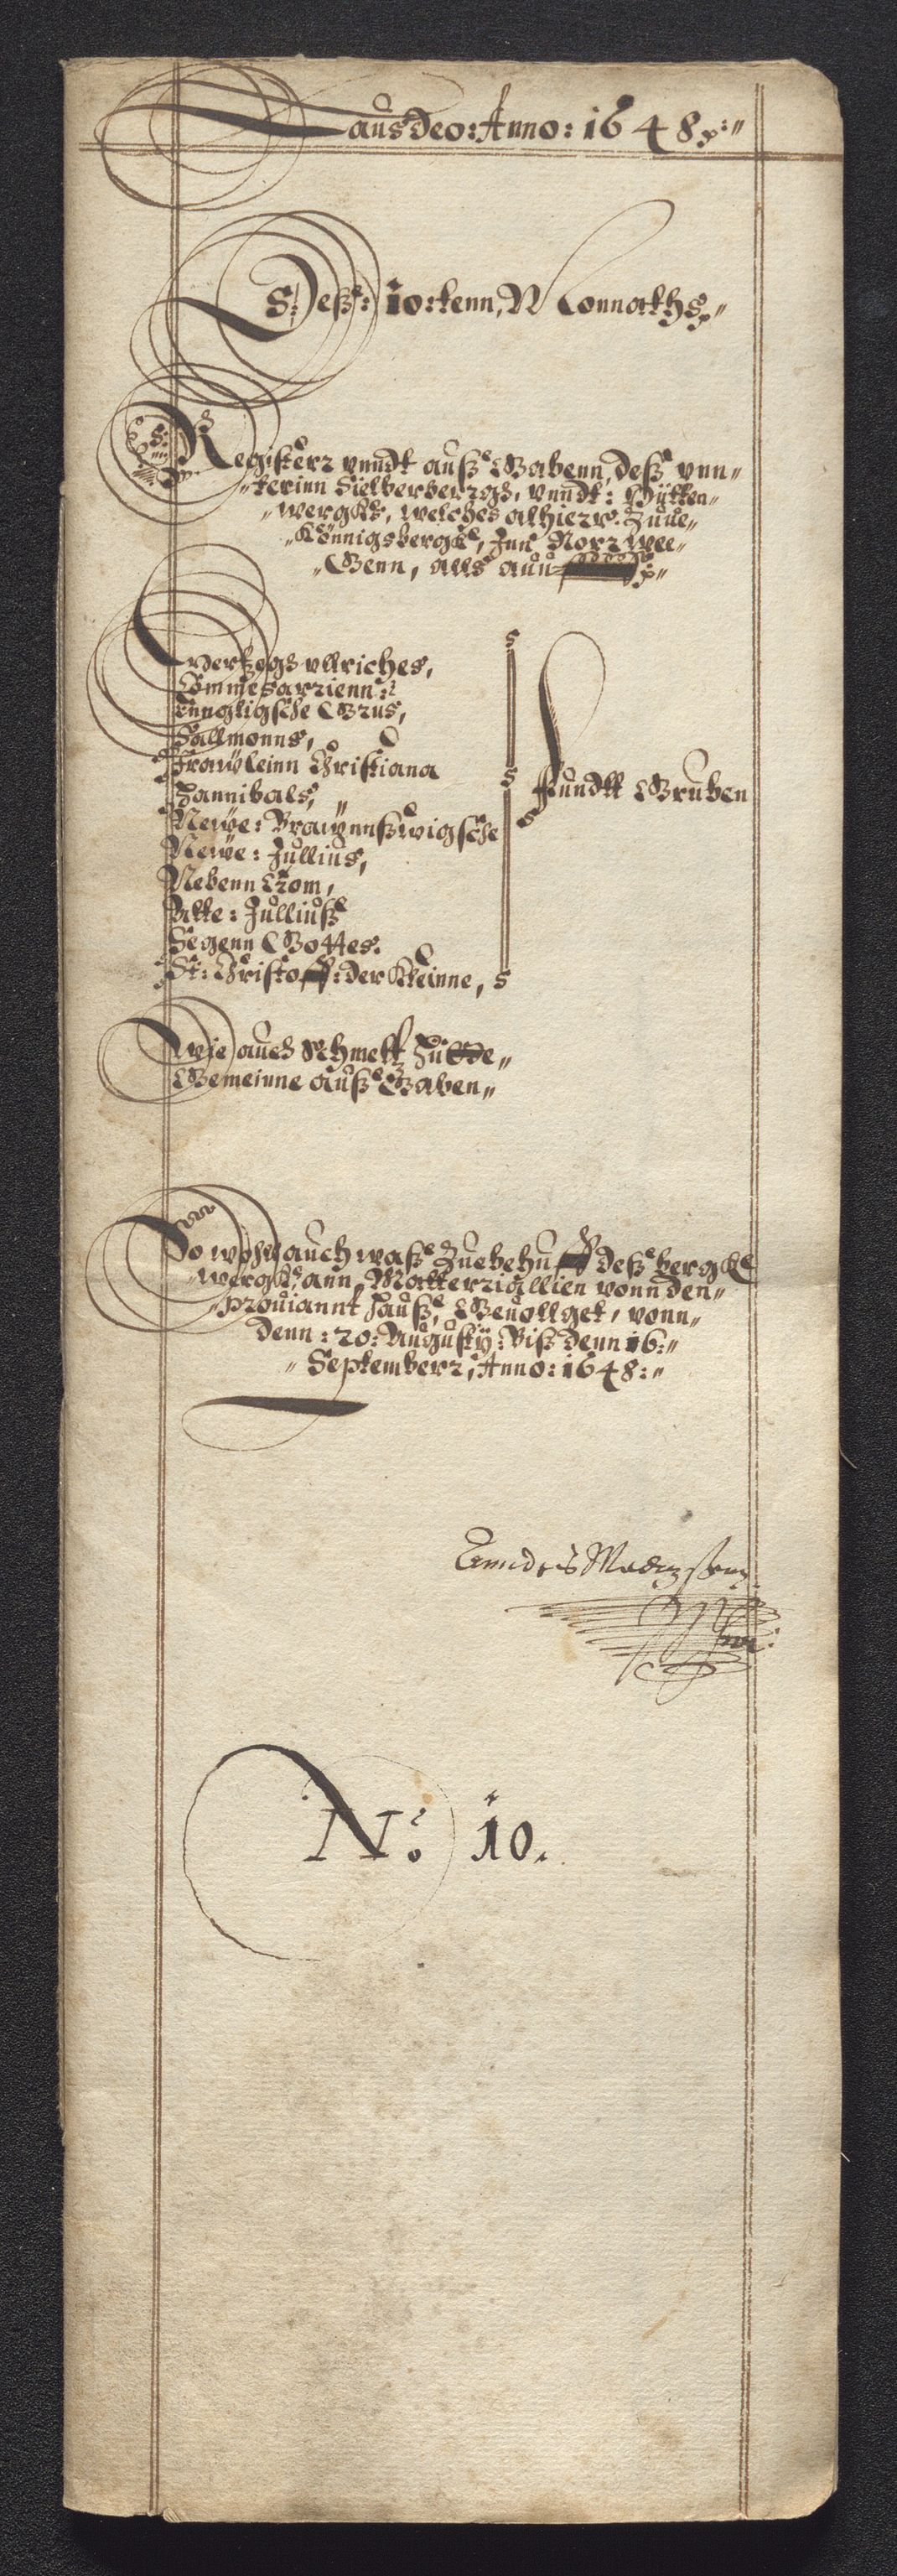 Laus deo: Anno: 1648
Deß: 10: tenn, Monnaths
Registerr vnndt auß Gabenn, deß vnn-
terinn Sielberbergs, vnndt: Hütten-
wergks, welches alhierr Zuue-
Königsbergk, Jnn Norrwee-
Genn, alls auu
Herzogs vllriches,
Commesarrienn:
Eungligsche Grus,
Sallmonns,
Frawleinn Christiana
Hannibals,
Newe: Brawnnßwigsche
Fundtt Gruben
Newe: Jullius,
Nebenn Trom,
Altte: Julliuß
Segenn Gottes.
St: Christoff: der Kleinne,
Wie auch Schmeltz Hütte
Gemeinne auß Gaben
So wohl auch waß Zuebehuff deß bergk
wergks ann Matterriallien vonn den
prouiannt Hauß, Geuollget, vonn
denn: 20: Augusty: Biß denn 16:
Septemberr, Anno: 1648:
No: 10.